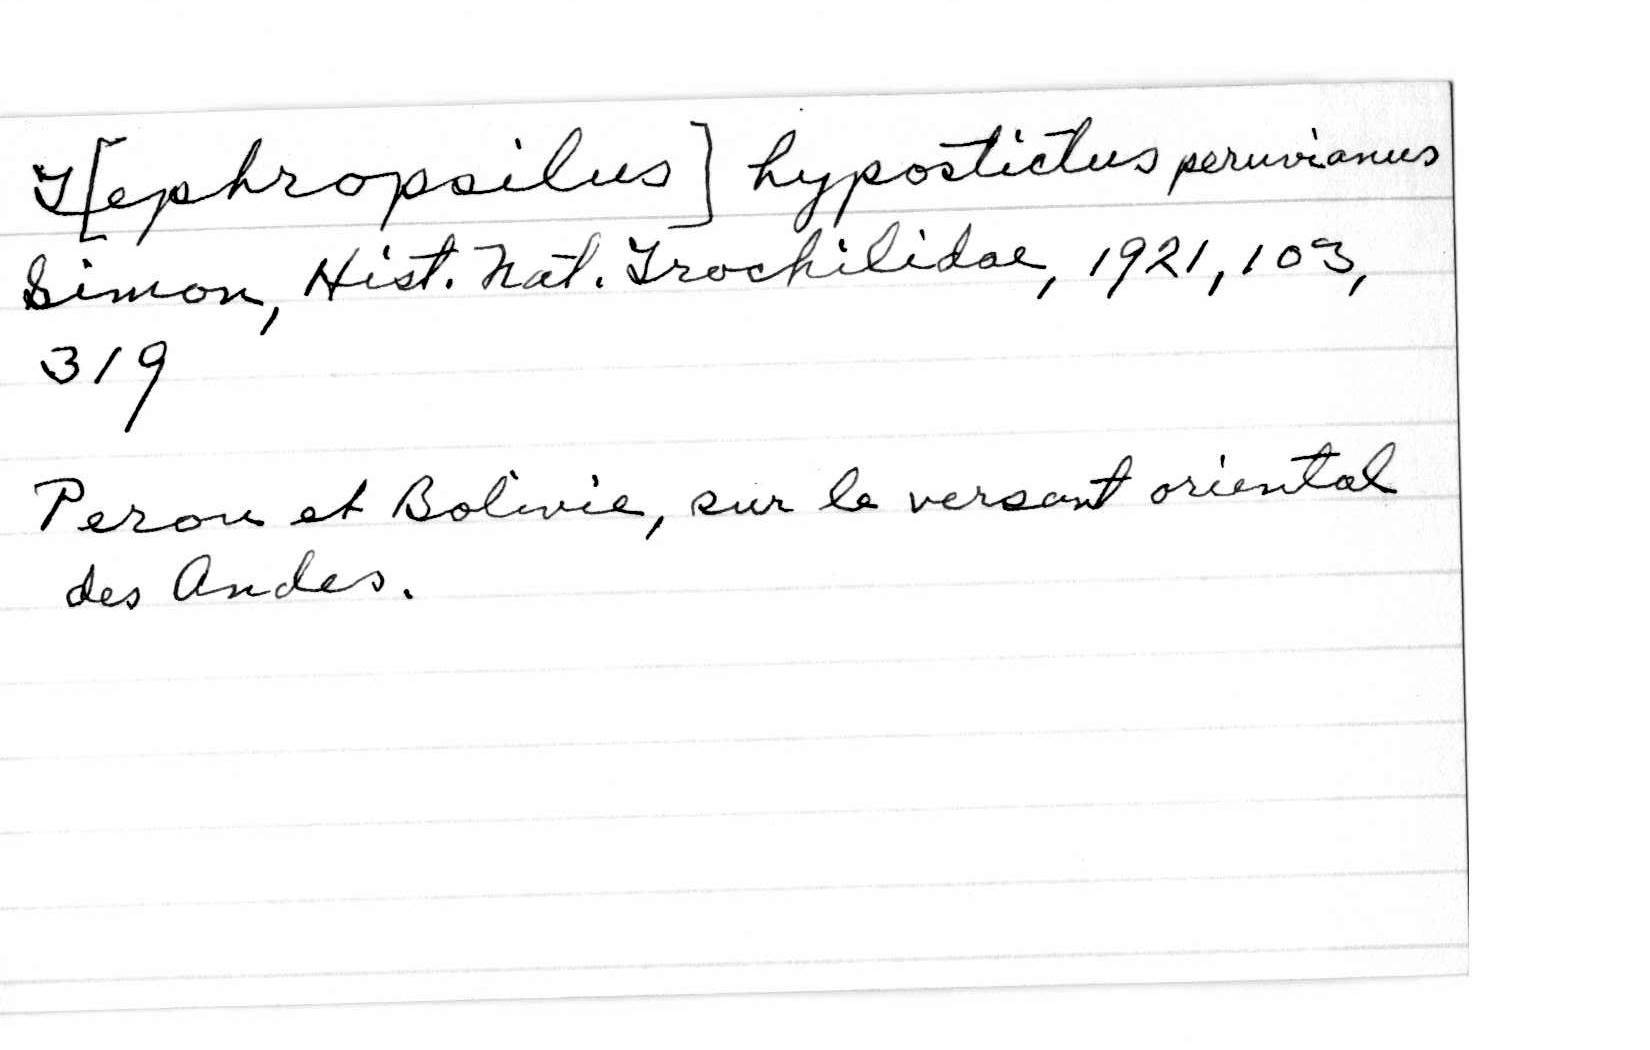 T[ephropsilus] hypostictus peruvianus
Simon, Hist. Nat. Trochilidae, 1921, 103,
319
Perou et Bolivie, sur le versant oriental
des Andes.